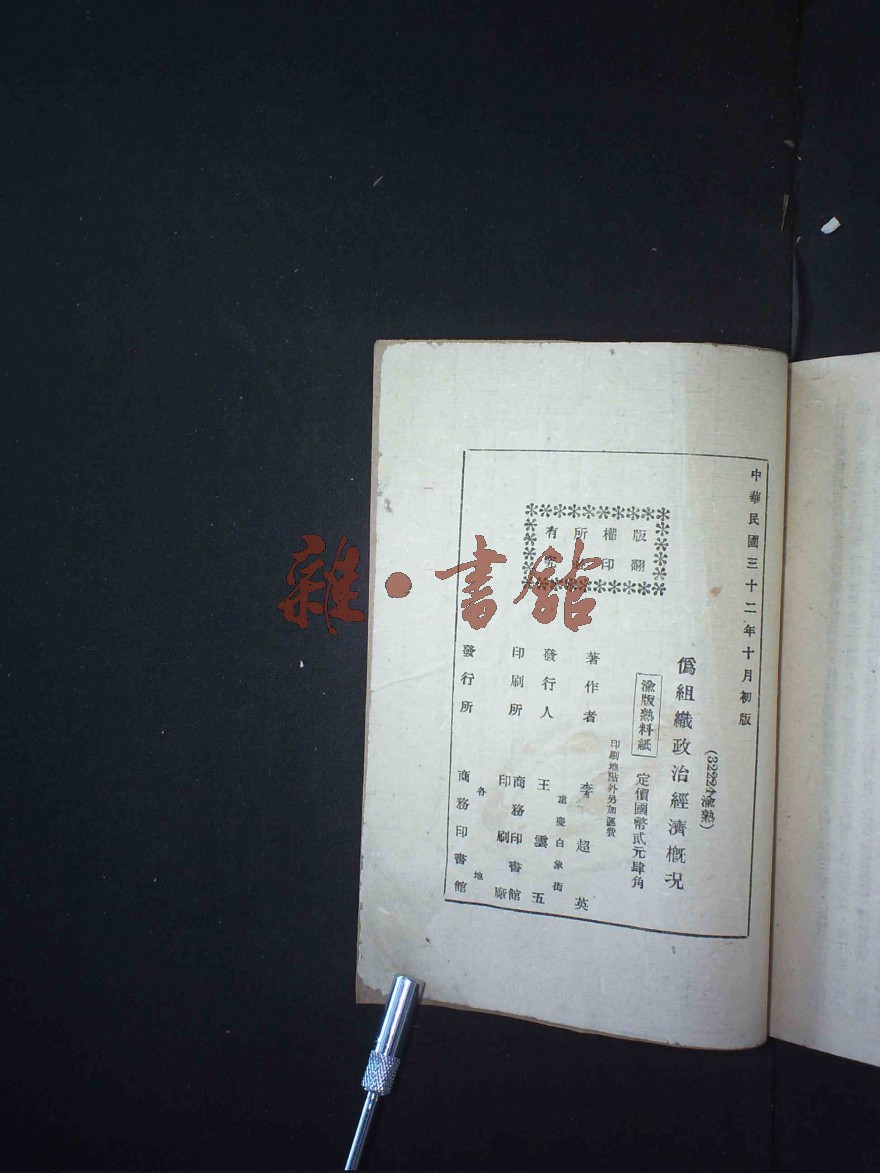 中華民國三十二年十月初版
(32224渝熟)
僞組織政治經濟概況
渝版熟料紙 定價國幣貳元肆角
印刷地點外另加運費
版權所有
翻印
著作者 李超英
重慶白象街
發行人 王雲五
印刷所 商務印書館印刷廠
各地
發行所 商務印書館
雜·書館